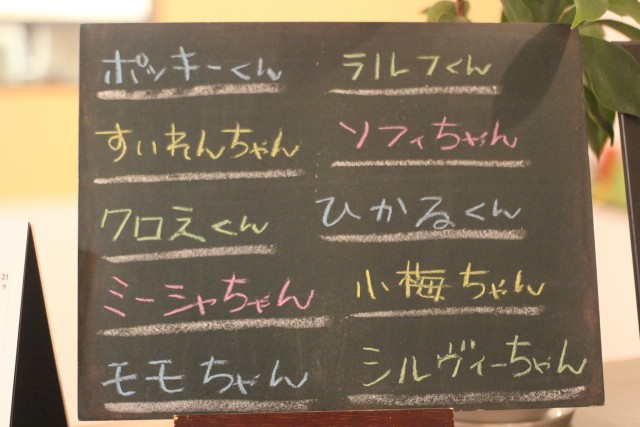 ポッキーくん
すいれんちゃん
クロえくん
ミーシャちゃん
モモちゃん
ラルフくん
ソフィちゃん
ひかるくん
小梅ちゃん
シルヴィーちゃん
31